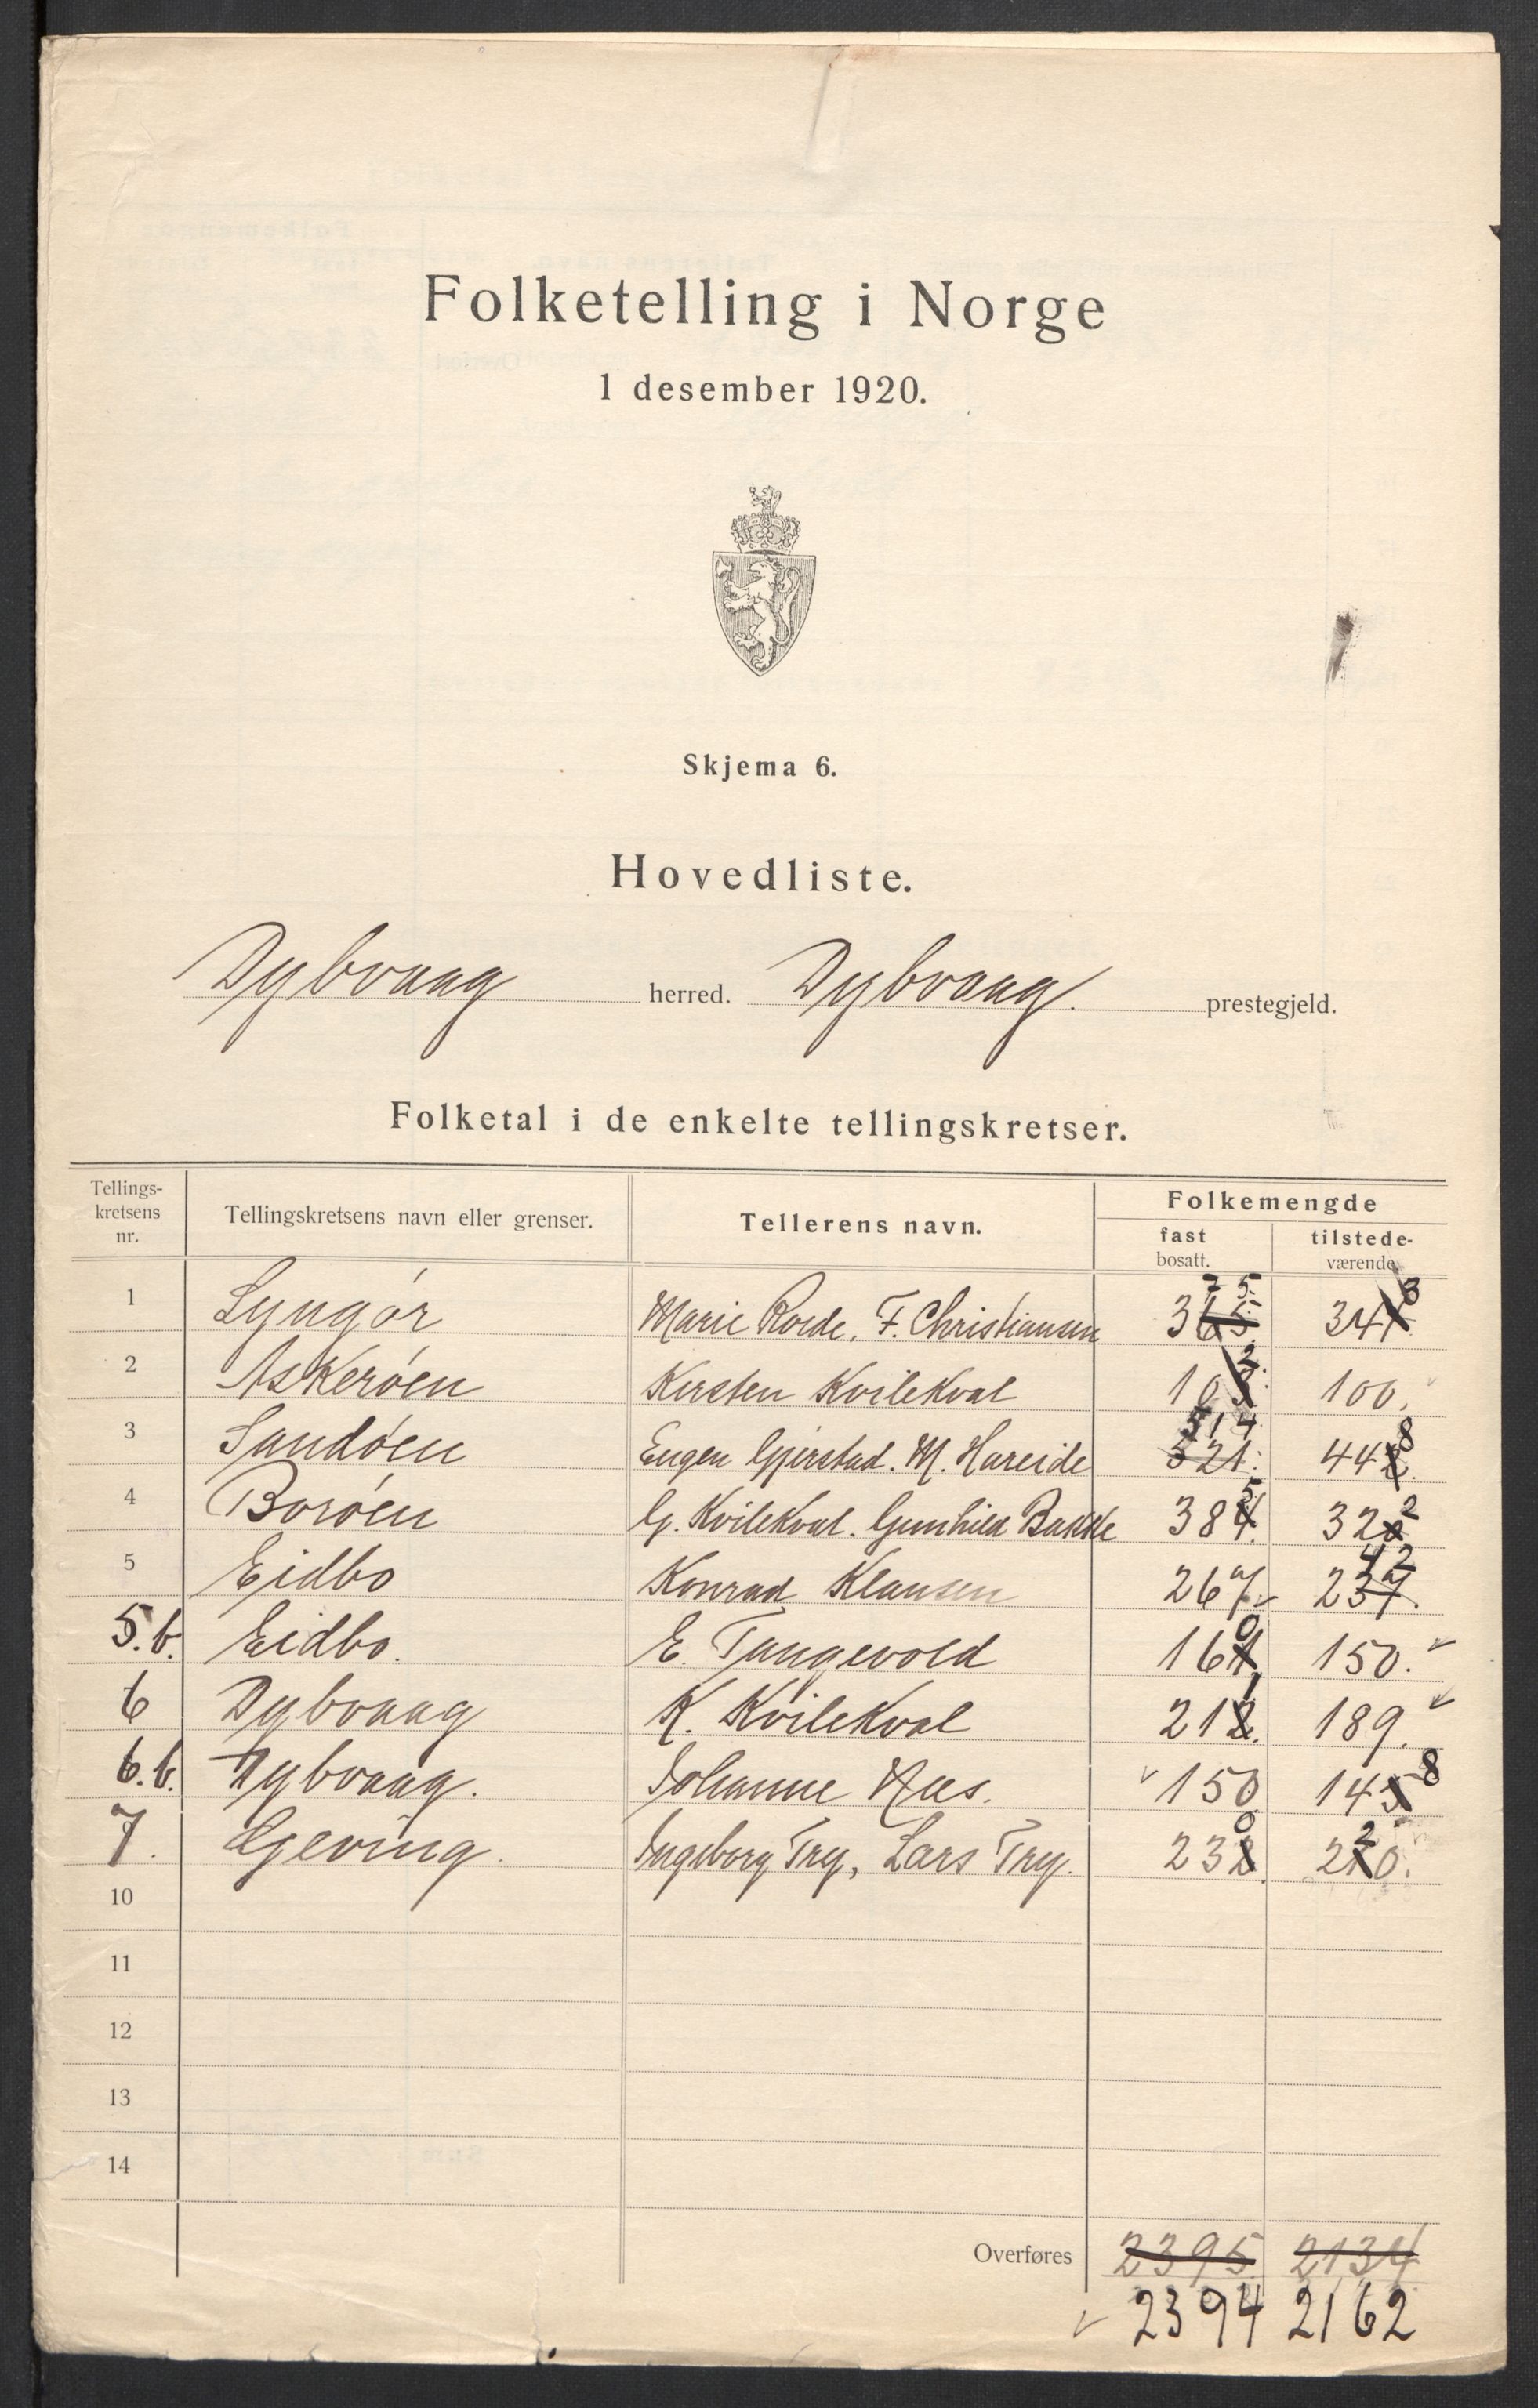 Folketelling i Norge
1 desember 1920.
Skjema 6.
Hovedliste.
Dybvaag herred. Dybvaag. prestegjeld.
Folketal i de enkelte tellingskretser.
Tellings-kretsens nr. Tellingskretsens navn eller grenser. Tellerens navn. Folkemengde
fast bosatt. tilstede-værende
1 Lyngör Marie Roede. F. Christiansen 365 75 341 3
2 Askeröen Kirsten Kvilekval 103 2 100.
3 Sandöen Eugen Gjerstad. M. Hareide 521. 514 442 8
4 Boröen G. Kvilekval. Gunhild Bakke 384. 5 320 2
5 Eidbo Konrad Klausen 267. 237. 42
5.b. Eidbo. E. Tangevold 161 0 150.
6 Dybvaag K. Kvilekval 212. 1 189.
6.b. Dybvaag. Johanne Næs. 150 145 8
7. Gjeving. Ingeborg Try, Lars Try. 232 0 210. 2
10
11
12
13
14
Overføres 2395 2134
2394 2162